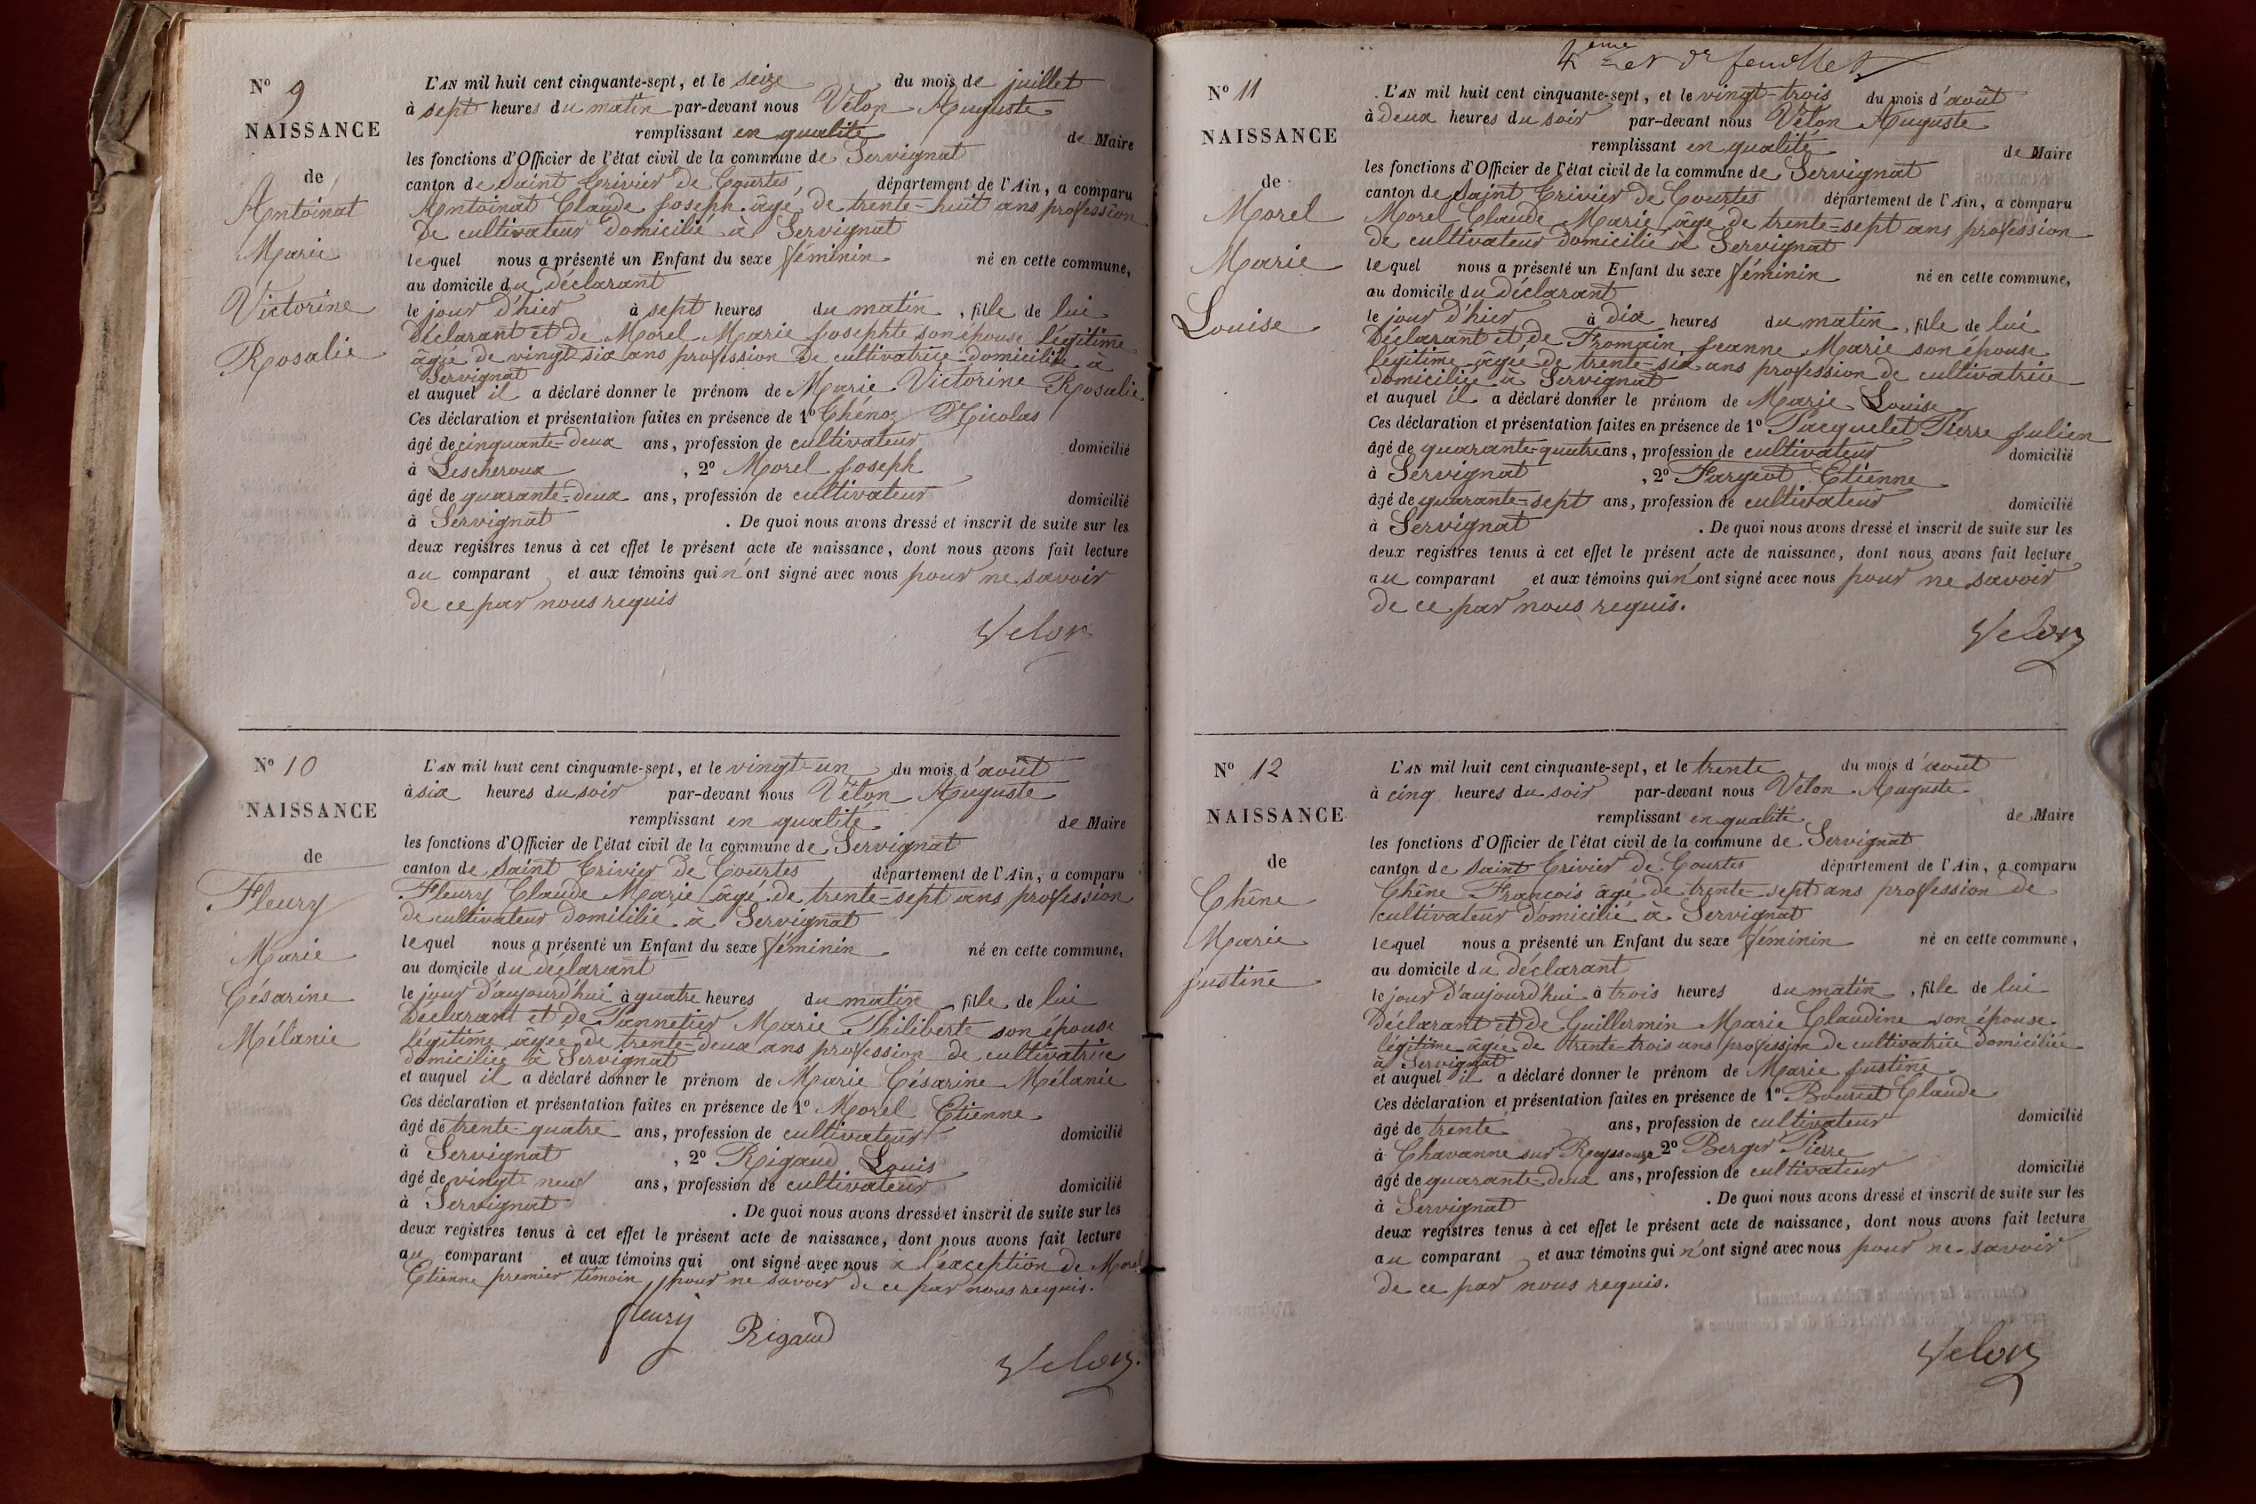 N° 9
NAISSANCE
de
Antoinat
Marie
Victorine
Rosalie
L'AN mil huit cent cinquante-sept, et le seize du mois de juillet
à sept heures du matin par-devant nous Vélon Auguste
remplissant en qualité de Maire
les fonctions d'Officier de l'état civil de la commune de Servignat
canton de Saint Trivier de Courtes département de l'Ain, a comparu
Antoinat Claude Joseph âgé de trente-huit ans profession
de cultivateur domicilié à Servignat
lequel nous a présenté un Enfant du sexe féminin né en cette commune,
au domicile du déclarant
le jour d'hier à sept heures du matin, fille de lui
déclarant et de Morel Marie Josephte son épouse légitime
âgée de vingt six ans profession de cultivatrice domiciliée à
Servignat
et auquel il a déclaré donner le prénom de Marie Victorine Rosalie
Ces déclaration et présentation faites en présence de 1° Chénoz Nicolas
âgé de cinquante-deux ans, profession de cultivateur domicilié
à Lescheroux, 2° Morel Joseph
âgé de quarante-deux ans, profession de cultivateur domicilié
à Servignat. De quoi nous avons dressé et inscrit de suite sur les
deux registres tenus à cet effet le présent acte de naissance, dont nous avons fait lecture
au comparant et aux témoins qui n'ont signé avec nous pour ne savoir
de ce par nous requis
Velon
N° 10
NAISSANCE
de
Fleury
Marie
Césarine
Mélanie
L'AN mil huit cent cinquante-sept, et le vingt-un du mois d'août
à six heures du soir par-devant nous Vélon Auguste
remplissant en qualité de Maire
les fonctions d'Officier de l'état civil de la commune de Servignat
canton de Saint Trivier de Courtes département de l'Ain, a comparu
Fleury Claude Marie âgé de trente-sept ans profession
de cultivateur domicilié à Servignat
lequel nous a présenté un Enfant du sexe féminin né en cette commune,
au domicile du déclarant
le jour d'aujourd'hui à quatre heures du matin, fille de lui
déclarant et de Pannetier Marie Philiberte son épouse
légitime âgée de trente-deux ans profession de cultivatrice
domiciliée à Servignat
et auquel il a déclaré donner le prénom de Marie Césarine Mélanie
Ces déclaration et présentation faites en présence de 1° Morel Etienne
âgé de trente-quatre ans, profession de cultivateur domicilié
à Servignat, 2° Rigaud Louis
âgé de vingt neuf ans, profession de cultivateur domicilié
à Servignat. De quoi nous avons dressé et inscrit de suite sur les
deux registres tenus à cet effet le présent acte de naissance, dont nous avons fait lecture
au comparant et aux témoins qui ont signé avec nous à l'exception de Morel
Etienne premier témoin pour ne savoir de ce par nous requis.
fleury
Rigaud
Velon
4ème et dr feuillet
N° 11
NAISSANCE
de
Morel
Marie
Louise
L'AN mil huit cent cinquante-sept, et le vingt-trois du mois d'août
à deux heures du soir par-devant nous Vélon Auguste
remplissant en qualité de Maire
les fonctions d'Officier de l'état civil de la commune de Servignat
canton de Saint Trivier de Courtes département de l'Ain, a comparu
Morel Claude Marie âgé de trente-sept ans profession
de cultivateur domicilié à Servignat
lequel nous a présenté un Enfant du sexe féminin né en cette commune,
au domicile du déclarant
le jour d'hier à dix heures du matin, fille de lui
déclarant et de Fromain Jeanne Marie son épouse
légitime âgée de trente-six ans profession de cultivatrice
domiciliée à Servignat
et auquel il a déclaré donner le prénom de Marie Louise
Ces déclaration et présentation faites en présence de 1° Pacquelet Pierre Julien
âgé de quarante-quatre ans, profession de cultivateur domicilié
à Servignat, 2° Fargeot Etienne
âgé de quarante-sept ans, profession de cultivateur domicilié
à Servignat. De quoi nous avons dressé et inscrit de suite sur les
deux registres tenus à cet effet le présent acte de naissance, dont nous avons fait lecture
au comparant et aux témoins qui n'ont signé avec nous pour ne savoir
de ce par nous requis.
Velon
N° 12
NAISSANCE
de
Chêne
Marie
Justine
L'AN mil huit cent cinquante-sept, et le trente du mois d'août
à cinq heures du soir par-devant nous Vélon Auguste
remplissant en qualité de Maire
les fonctions d'Officier de l'état civil de la commune de Servignat
canton de Saint Trivier de Courtes département de l'Ain, a comparu
Chêne François âgé de trente-sept ans profession de
cultivateur domicilié à Servignat
lequel nous a présenté un Enfant du sexe féminin né en cette commune,
au domicile du déclarant
le jour d'aujourd'hui à trois heures du matin, fille de lui
déclarant et de Guillermin Marie Claudine son épouse
légitime âgée de trente-trois ans profession de cultivatrice domiciliée
à Servignat
et auquel il a déclaré donner le prénom de Marie Justine
Ces déclaration et présentation faites en présence de 1° Bourcet Claude
âgé de trente ans, profession de cultivateur domicilié
à Chavanne sur Reyssouze 2° Berger Pierre
âgé de quarante-deux ans, profession de cultivateur domicilié
à Servignat. De quoi nous avons dressé et inscrit de suite sur les
deux registres tenus à cet effet le présent acte de naissance, dont nous avons fait lecture
au comparant et aux témoins qui n'ont signé avec nous pour ne savoir
de ce par nous requis.
Velon